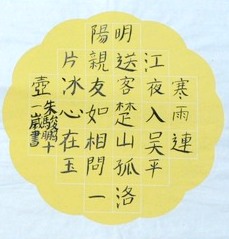 寒雨連
江夜入吳平
明送客楚山孤洛
陽親友如相問一
片冰心在玉
壺
朱駿鵬十
一歲書